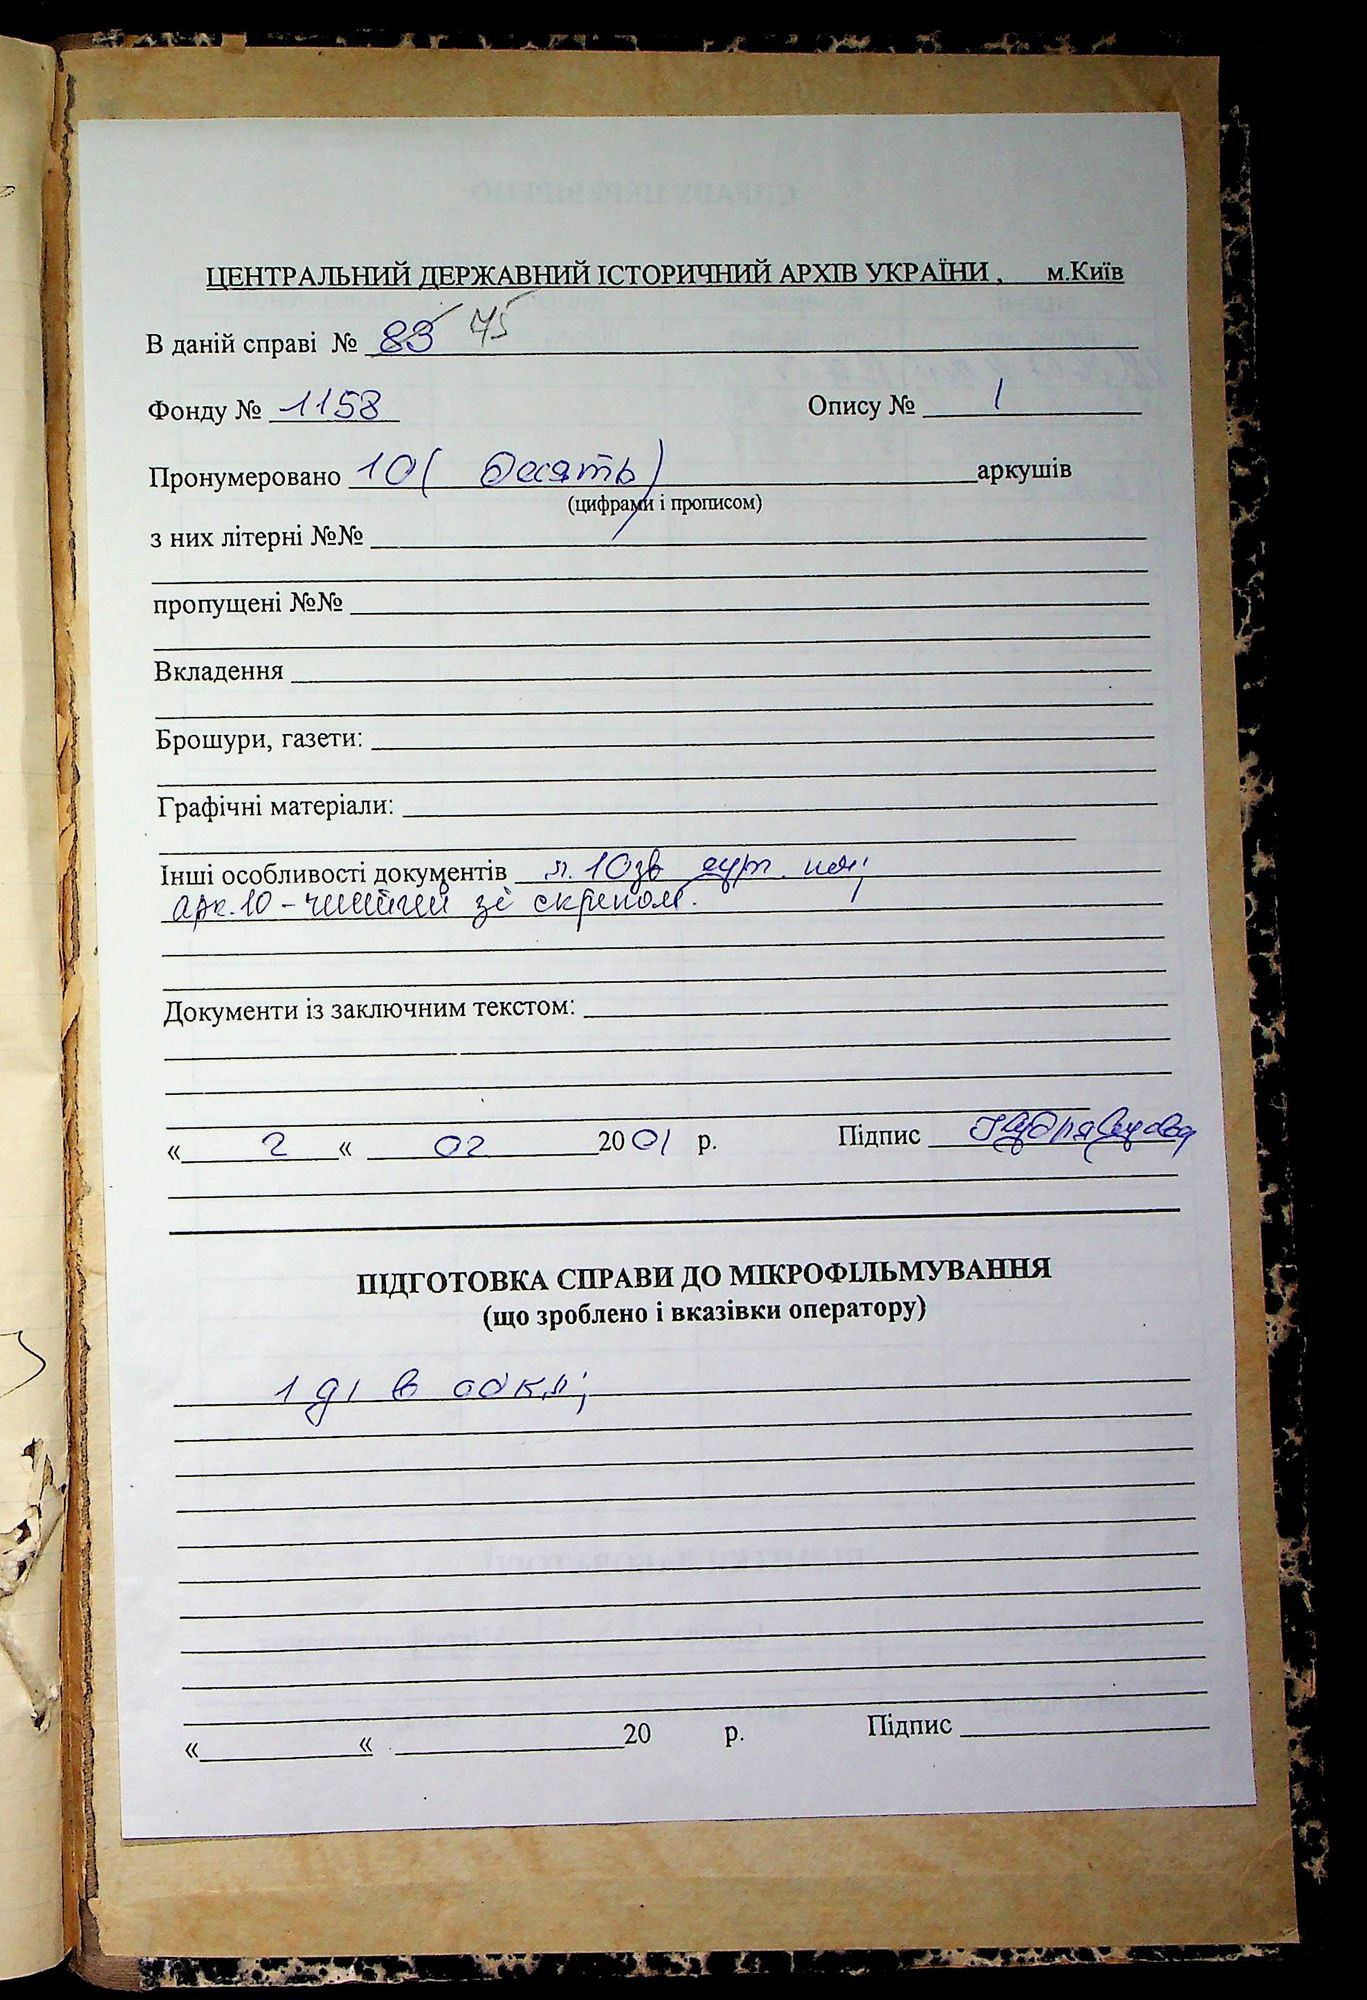 ЦЕНТРАЛЬНИЙ ДЕРЖАВНИЙ ІСТОРИЧНИЙ АРХІВ УКРАЇНИ , м.Київ
В даній справі № 83 75
Фонду № 1158 Опису № 1
Пронумеровано 10 ( десять ) аркушів
(цифрами і прописом)
з них літерні №№
пропущені №№
Вкладення
Брошури, газети:
Графічні матеріали:
Інші особливості документів л. 10зв
арк. 10 - чистий зі скрепом.
Документи із заключним текстом:
« 2 « 02 2001 р. Підпис
ПІДГОТОВКА СПРАВИ ДО МІКРОФІЛЬМУВАННЯ
(що зроблено і вказівки оператору)
1 в
« « 20 р. Підпис